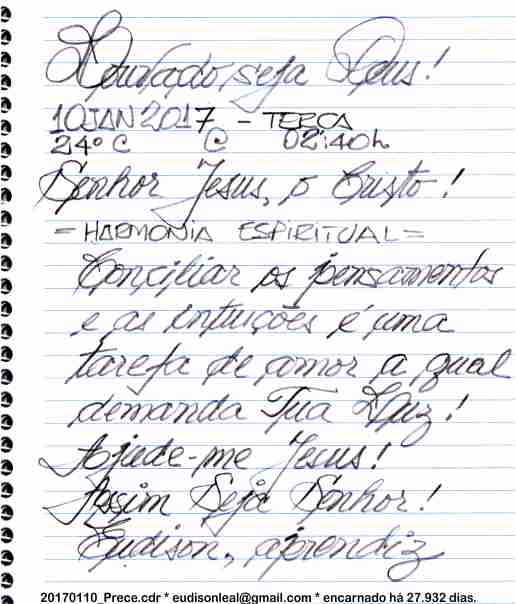 Louvado seja Deus!
10 JAN 2017 - TERÇA
24° C C 02:40h
Senhor Jesus, o Cristo!
= HARMONIA ESPIRITUAL =
Conciliar os pensamentos
e as intuições é uma
tarefa de amor a qual
demanda Tua Luz!
Ajude-me Jesus!
Assim Seja Senhor!
Eudison, aprendiz
20170110_Prece.cdr * eudisonleal@gmail.com * encarnado há 27.932 dias.